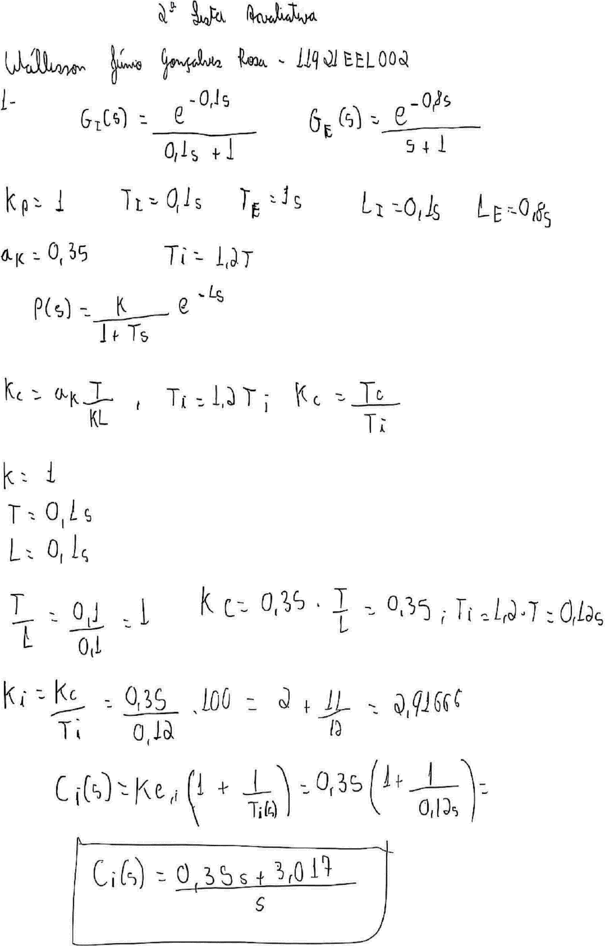 2ª Lista Avaliativa
Wállisson Júnio Gonçalves Rosa - 11921EEL002
1-
G_I(s) = e^{-0,1s} / (0,1s + 1)    G_E(s) = e^{-0,8s} / (s + 1)
K_P = 1    T_I = 0,1s    T_E = 1s    L_I = 0,1s    L_E = 0,8s
a_K = 0,35    Ti = 1,2T
P(s) = K / (1 + Ts) e^{-Ls}
Kc = a_K T / KL , Ti = 1,2T ; Kc = Tc / Ti
K = 1
T = 0,1s
L = 0,1s
T / L = 0,1 / 0,1 = 1    KC = 0,35 · T / L = 0,35 ; Ti = 1,2·T = 0,12s
Ki = Kc / Ti = 0,35 / 0,12 · 100 = 2 + 11 / 12 = 2,91666
Ci(s) = Kc,i (1 + 1 / Ti(s)) = 0,35 (1 + 1 / 0,12s) =
Ci(s) = 0,35s + 3,017 / s